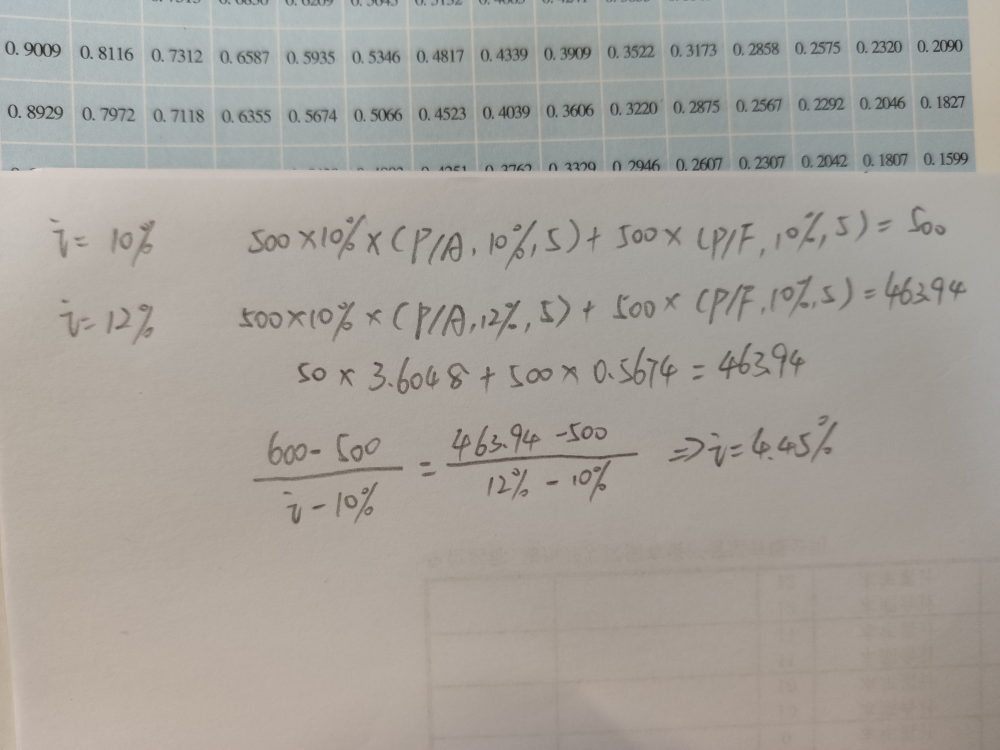 0.9009 0.8116 0.7312 0.6587 0.5935 0.5346 0.4817 0.4339 0.3909 0.3522 0.3173 0.2858 0.2575 0.2320 0.2090
0.8929 0.7972 0.7118 0.6355 0.5674 0.5066 0.4523 0.4039 0.3606 0.3220 0.2875 0.2567 0.2292 0.2046 0.1827
0.3329 0.2946 0.2607 0.2307 0.2042 0.1807 0.1599
i=10% 500×10%×(P/A,10%,5)+500×(P/F,10%,5)=500
i=12% 500×10%×(P/A,12%,5)+500×(P/F,10%,5)=463.94
50×3.6048+500×0.5674=463.94
600-500/i-10% = 463.94-500/12%-10% ⇒i=4.45%